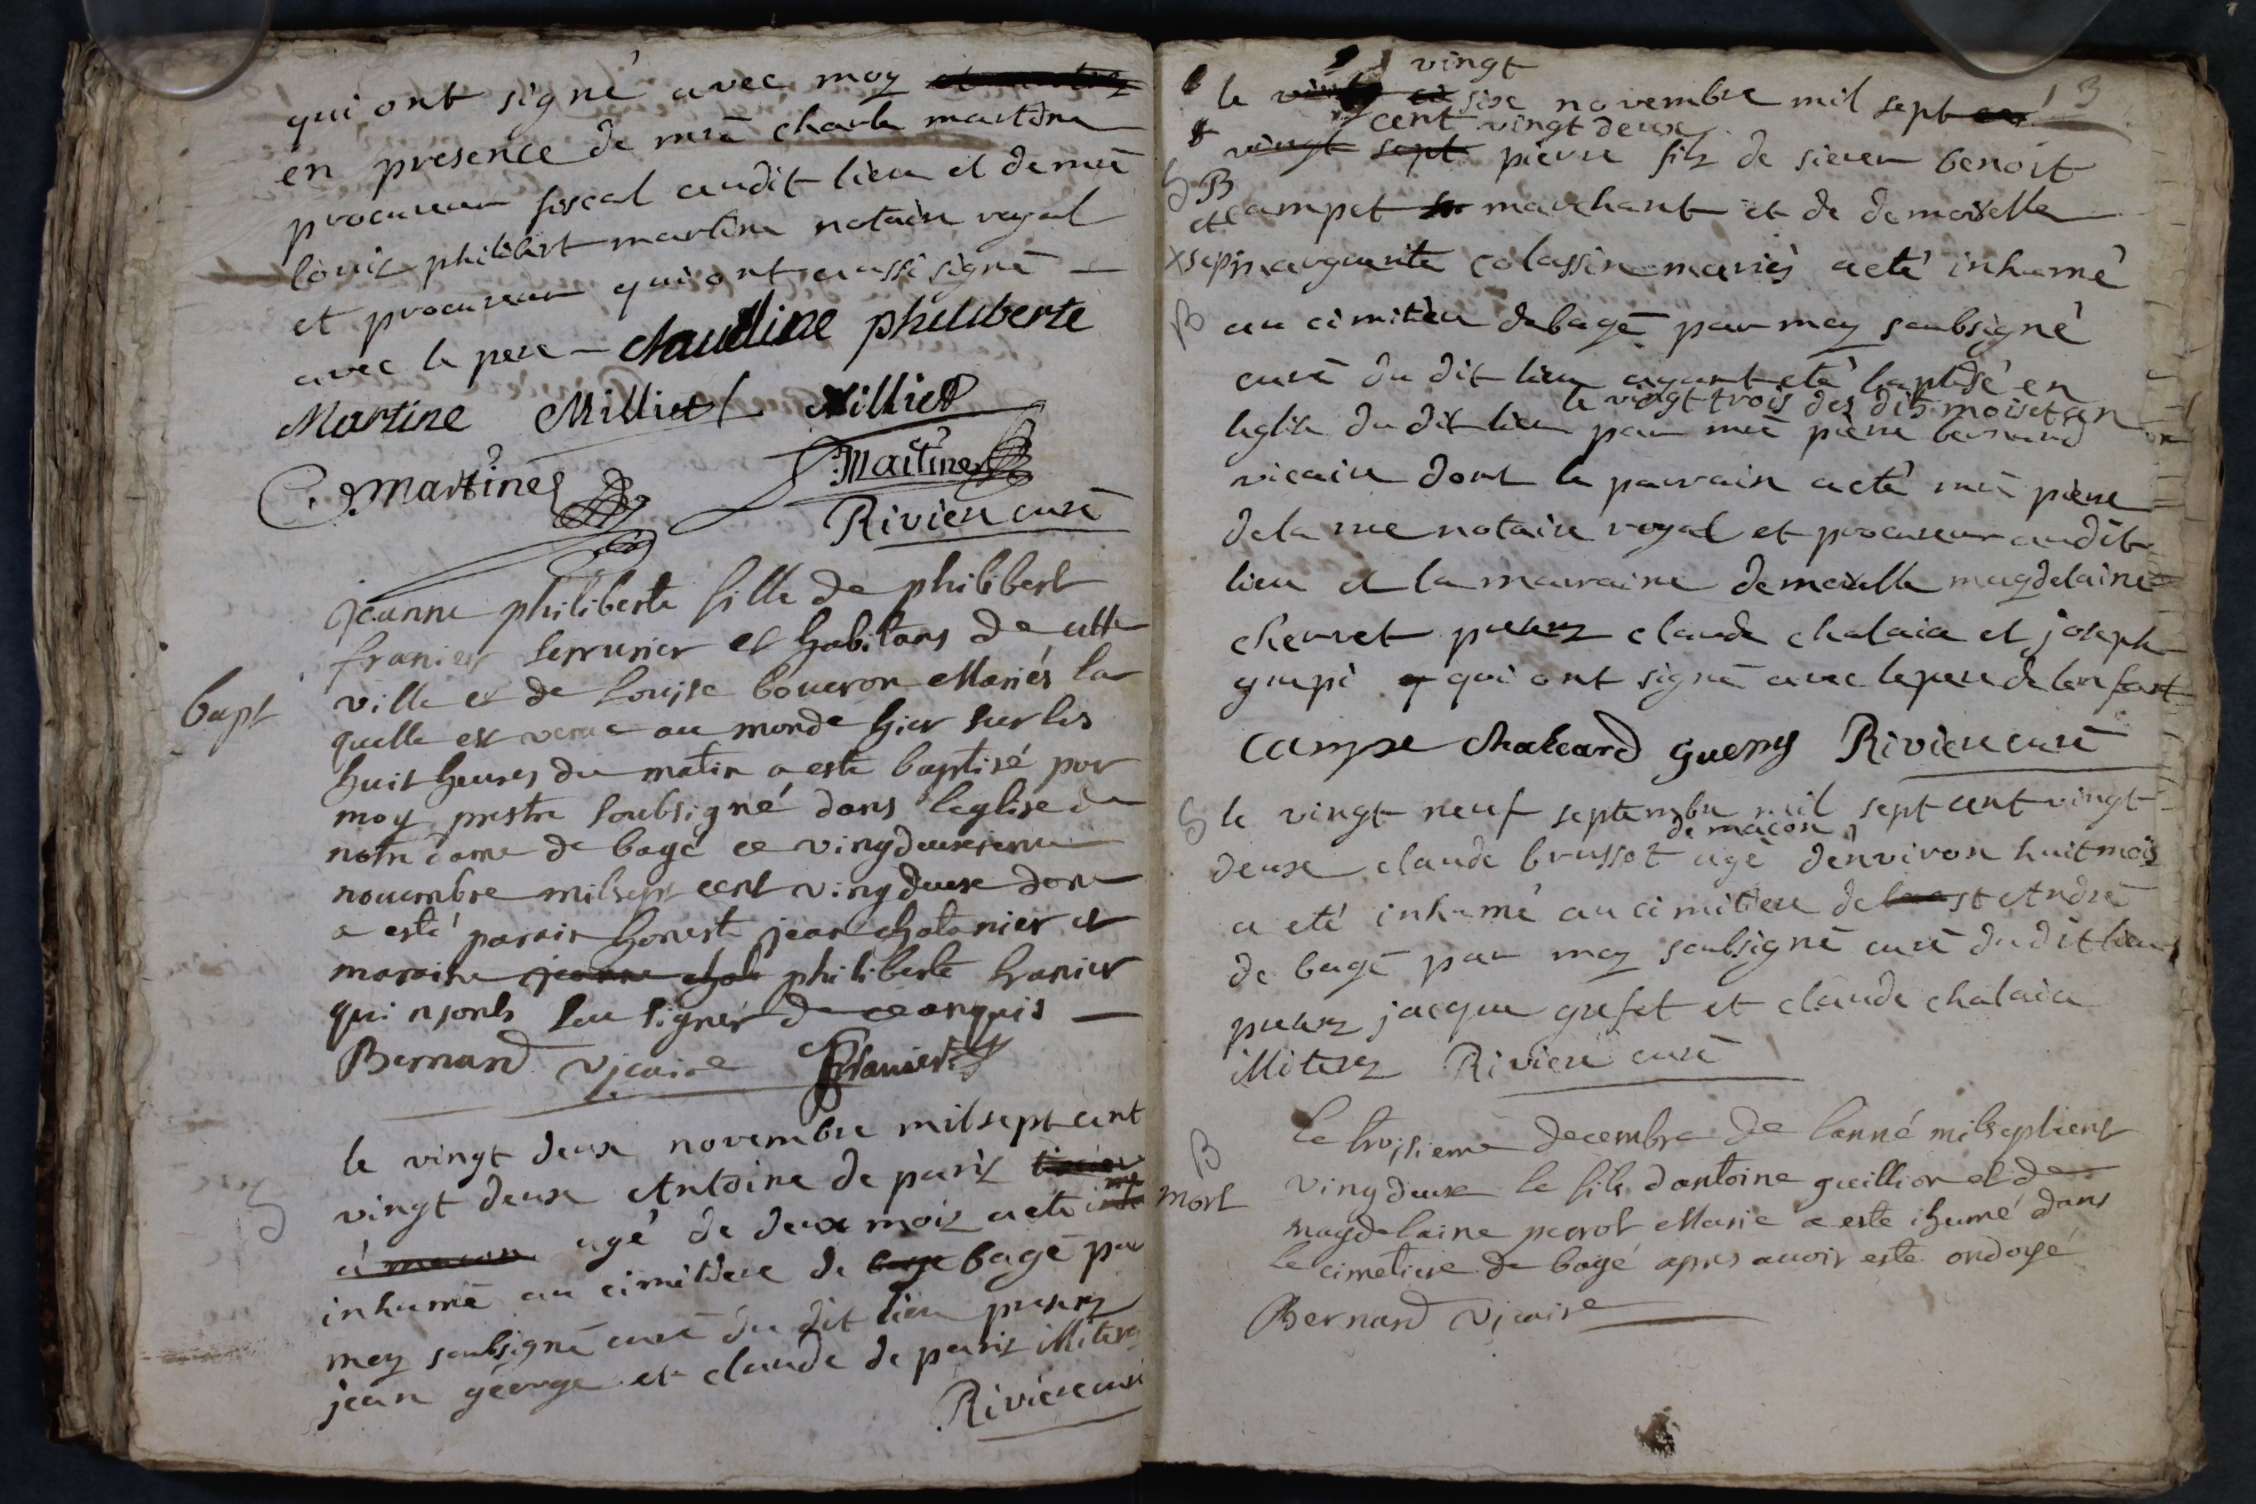 qui ont signé avec moy
en presence de mre charle martine
procureur fiscal audit lieu et de mre
louis philibert martine notaire royal
et procureur qui ont aussi signé
avec le pere claudine philiberte
Martine Milliet Milliet
C. Martine Martine
Riviere curé
jeanne philiberte fille de philibert
franier serrurier et habitans de cette
ville et de Louise boueron Mariés la
bapt
quelle est venue au monde hier sur les
huit heures du matin a esté baptisé par
moy prestre soubsigné dans leglise de
notre dame de bagé ce vingdeuxieme
novembre milsept cent vingdeux dont
a esté parain honeste jean chatanier et
maraine jeanne philiberte franier
qui nsonts seu signer de ce anquis
Bernard vicaire franier
le vingt deux novembre mil sept cent
vingt deux Antoine de paris
à macon agé de deux mois a eté
inhumé au cimitiere de bage bagé par
moy soubsigné curé du dit lieu presens
jean géorge et claude de paris illiteres
Riviere curé
13
vingt
le six novembre mil sept
cent vingt deux
vingt sept pierre fils de sieur benoit
B
et
campet marchant et de demoiselle
sep
marguerite colassin mariés a eté inhumé
au cimitiere de bagé par moy soubsigné
curé du dit lieu ayant eté baptisé en
le vingt trois des dits mois et an
leglise du dit lieu par mre pierre bernard
vicaire dont le parrain a eté mre pierre
de la rue notaire royal et procureur audit
lieu et la marraine demoiselle magdelaine
chervet presens claude chalaia et joseph
gurpi qui ont signé avec le pere de lenfant
campe chaleard guerpy Riviere curé
S
le vingt neuf septembre mil sept cent vingt
de macon
deux claude brusset agé denviron huit mois
a eté inhumé au cimitiere de st André
de bagé par moy soubsigné curé du dit lieu
presens jacque gufet et claude chalaia
illiteres Riviere curé
B
mort
Le troisieme decembre de lanné milseptcent
vingdeux le fils dantoine guillion et de
magdelaine perrot Marié a esté ihumé dans
le cimetiere de bagé apres avoir esté ondoyé
Bernard vicaire